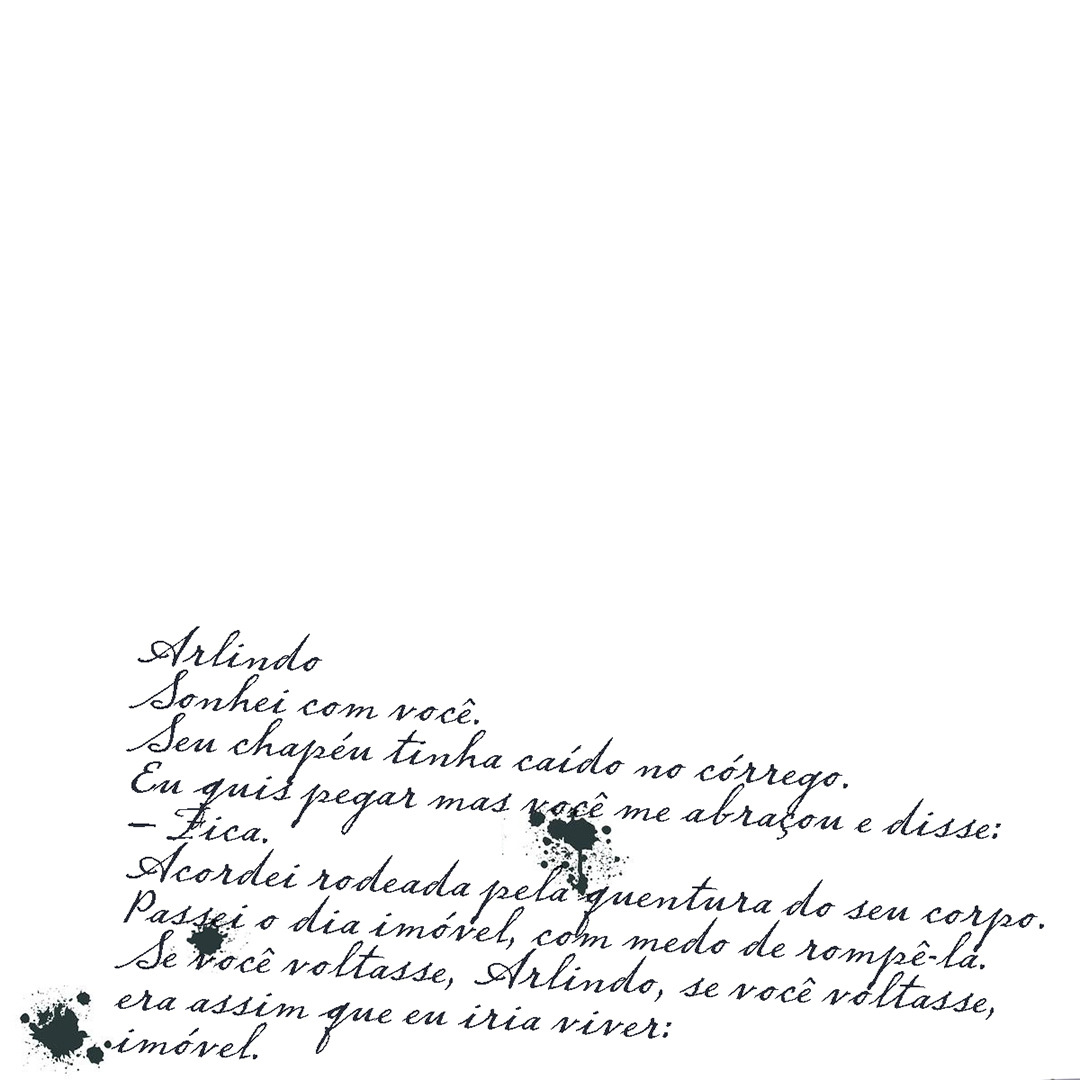 Arlindo
Sonhei com você.
Seu chapéu tinha caído no córrego.
Eu quis pegar mas você me abraçou e disse:
– Fica.
Acordei rodeada pela quentura do seu corpo.
Passei o dia imóvel, com medo de rompê-la.
Se você voltasse, Arlindo, se você voltasse,
era assim que eu iria viver:
imóvel.